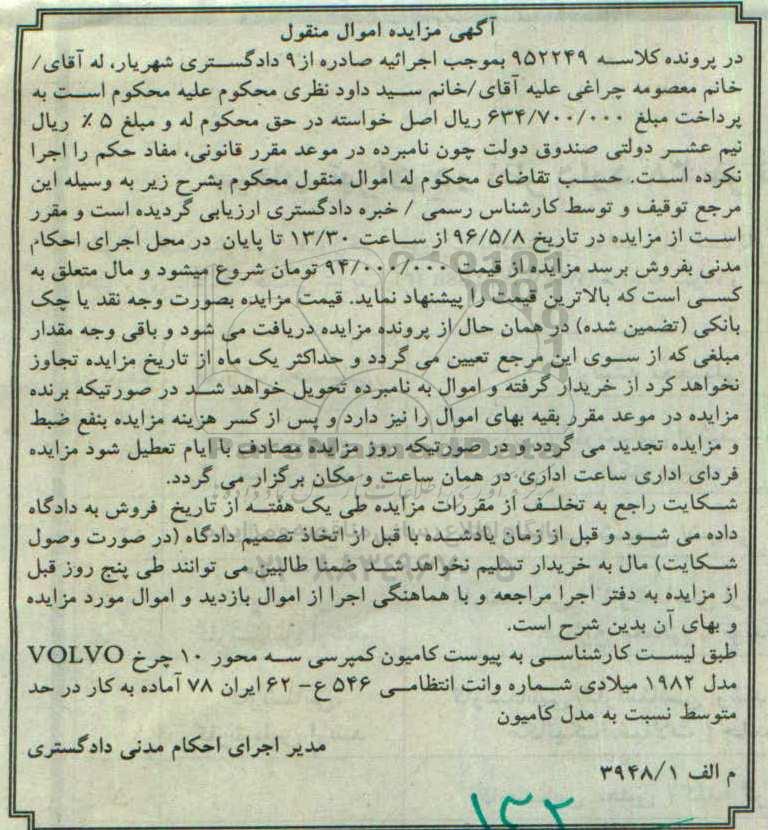 آگهی مزایده اموال منقول
در پرونده کلاسه ۹۵۲۲۴۹ بموجب اجرائیه صادره از۹ دادگستری شهریار، له آقای/
خانم معصومه چراغی علیه آقای/خانم سید داود نظری محکوم علیه محکوم است به
پرداخت مبلغ ۶۳۴/۷۰۰/۰۰۰ ریال اصل خواسته در حق محکوم له و مبلغ ۵٪ ریال
نیم عشر دولتی صندوق دولت چون نامبرده در موعد مقرر قانونی، مفاد حکم را اجرا
نکرده است. حسب تقاضای محکوم له اموال منقول محکوم بشرح زیر به وسیله این
مرجع توقیف و توسط کارشناس رسمی / خبره دادگستری ارزیابی گردیده است و مقرر
است از مزایده در تاریخ ۹۶/۵/۸ از ساعت ۱۳/۳۰ تا پایان در محل اجرای احکام
مدنی بفروش برسد مزایده از قیمت ۹۴/۰۰۰/۰۰۰ تومان شروع میشود و مال متعلق به
کسی است که بالاترین قیمت را پیشنهاد نماید. قیمت مزایده بصورت وجه نقد یا چک
بانکی (تضمین شده) در همان حال از پرونده مزایده دریافت می شود و باقی وجه مقدار
مبلغی که از سوی این مرجع تعیین می گردد و حداکثر یک ماه از تاریخ مزایده تجاوز
نخواهد کرد از خریدار گرفته و اموال به نامبرده تحویل خواهد شد در صورتیکه برنده
مزایده در موعد مقرر بقیه بهای اموال را نیز دارد و پس از کسر هزینه مزایده بنفع ضبط
و مزایده تجدید می گردد و در صورتیکه روز مزایده مصادف با ایام تعطیل شود مزایده
فردای اداری ساعت اداری در همان ساعت و مکان برگزار می گردد.
شکایت راجع به تخلف از مقررات مزایده طی یک هفته از تاریخ فروش به دادگاه
داده می شود و قبل از زمان یادشده با قبل از اتخاذ تصمیم دادگاه (در صورت وصول
شکایت) مال به خریدار تسلیم نخواهد شد ضمنا طالبین می توانند طی پنج روز قبل
از مزایده به دفتر اجرا مراجعه و با هماهنگی اجرا از اموال بازدید و اموال مورد مزایده
و بهای آن بدین شرح است.
طبق لیست کارشناسی به پیوست کامیون کمپرسی سه محور ۱۰ چرخ VOLVO
مدل ۱۹۸۲ میلادی شماره وانت انتظامی ۵۴۶ع- ۶۲ ایران ۷۸ آماده به کار در حد
متوسط نسبت به مدل کامیون
مدیر اجرای احکام مدنی دادگستری
م الف ۳۹۴۸/۱
۱۳۲